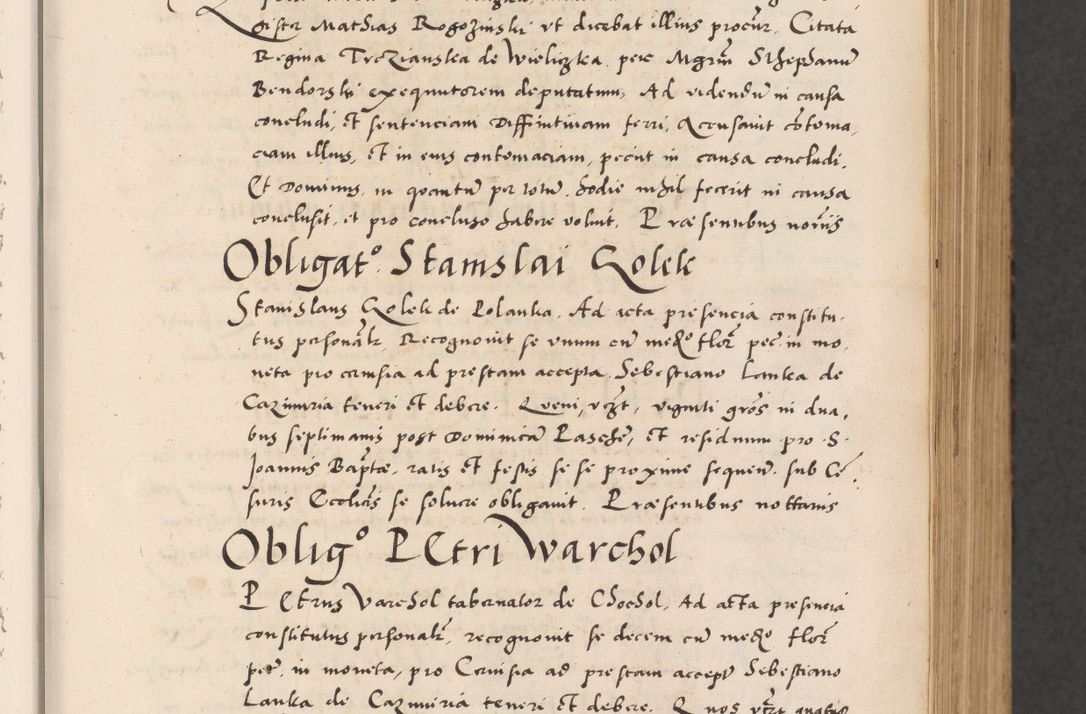 gister Mathias Rogozinski ut dicebat illius procur. Citata
Regina Trczianska de Wieliczka. pere Mgrm Sthephanu
Bendorski exequutorem deputatum, Ad videndu in causa
concludi, et sentenciam Diffinitivam ferri, Accusavit contuma,
ciam illius, et in eius contemaciam, peciit in causa concludi.
Et Dominus, in quantu per totu. hodie nihil fecerit in causa
conclusit, et pro concluso habere voluit. Praesentibus noriis
Obligato. Stanislai Golek
Stanislaus Golek de Polanka. Ad acta presencia constitu-
tus personalr, Recognovit se unum cu medo flor pec. in mo,
neta pro cervisia ad prestam accepta Sebestiano Lanka de
Cazimiria teneri et debere. Queni, vczt, viginti gros in dua,
bus septimanis post Dominica Pasche, et residuum pro S.
Joannis Baptae. ratis et festis se se proxime sequen. sub Ce,
suris Ecclicis se solvere obligavit. Praesentibus nottariis
Obligo Petri Warchol
Petrus Varchol tabernator de Chochol, Ad acta presencia
constitutus personalr, recognovit se decem cu medo flor
pec, in moneta, pro Cervisia ad prestam accept Sebestiano
Lanka de Cazimiria teneri et debere. Quos vczt quatuo